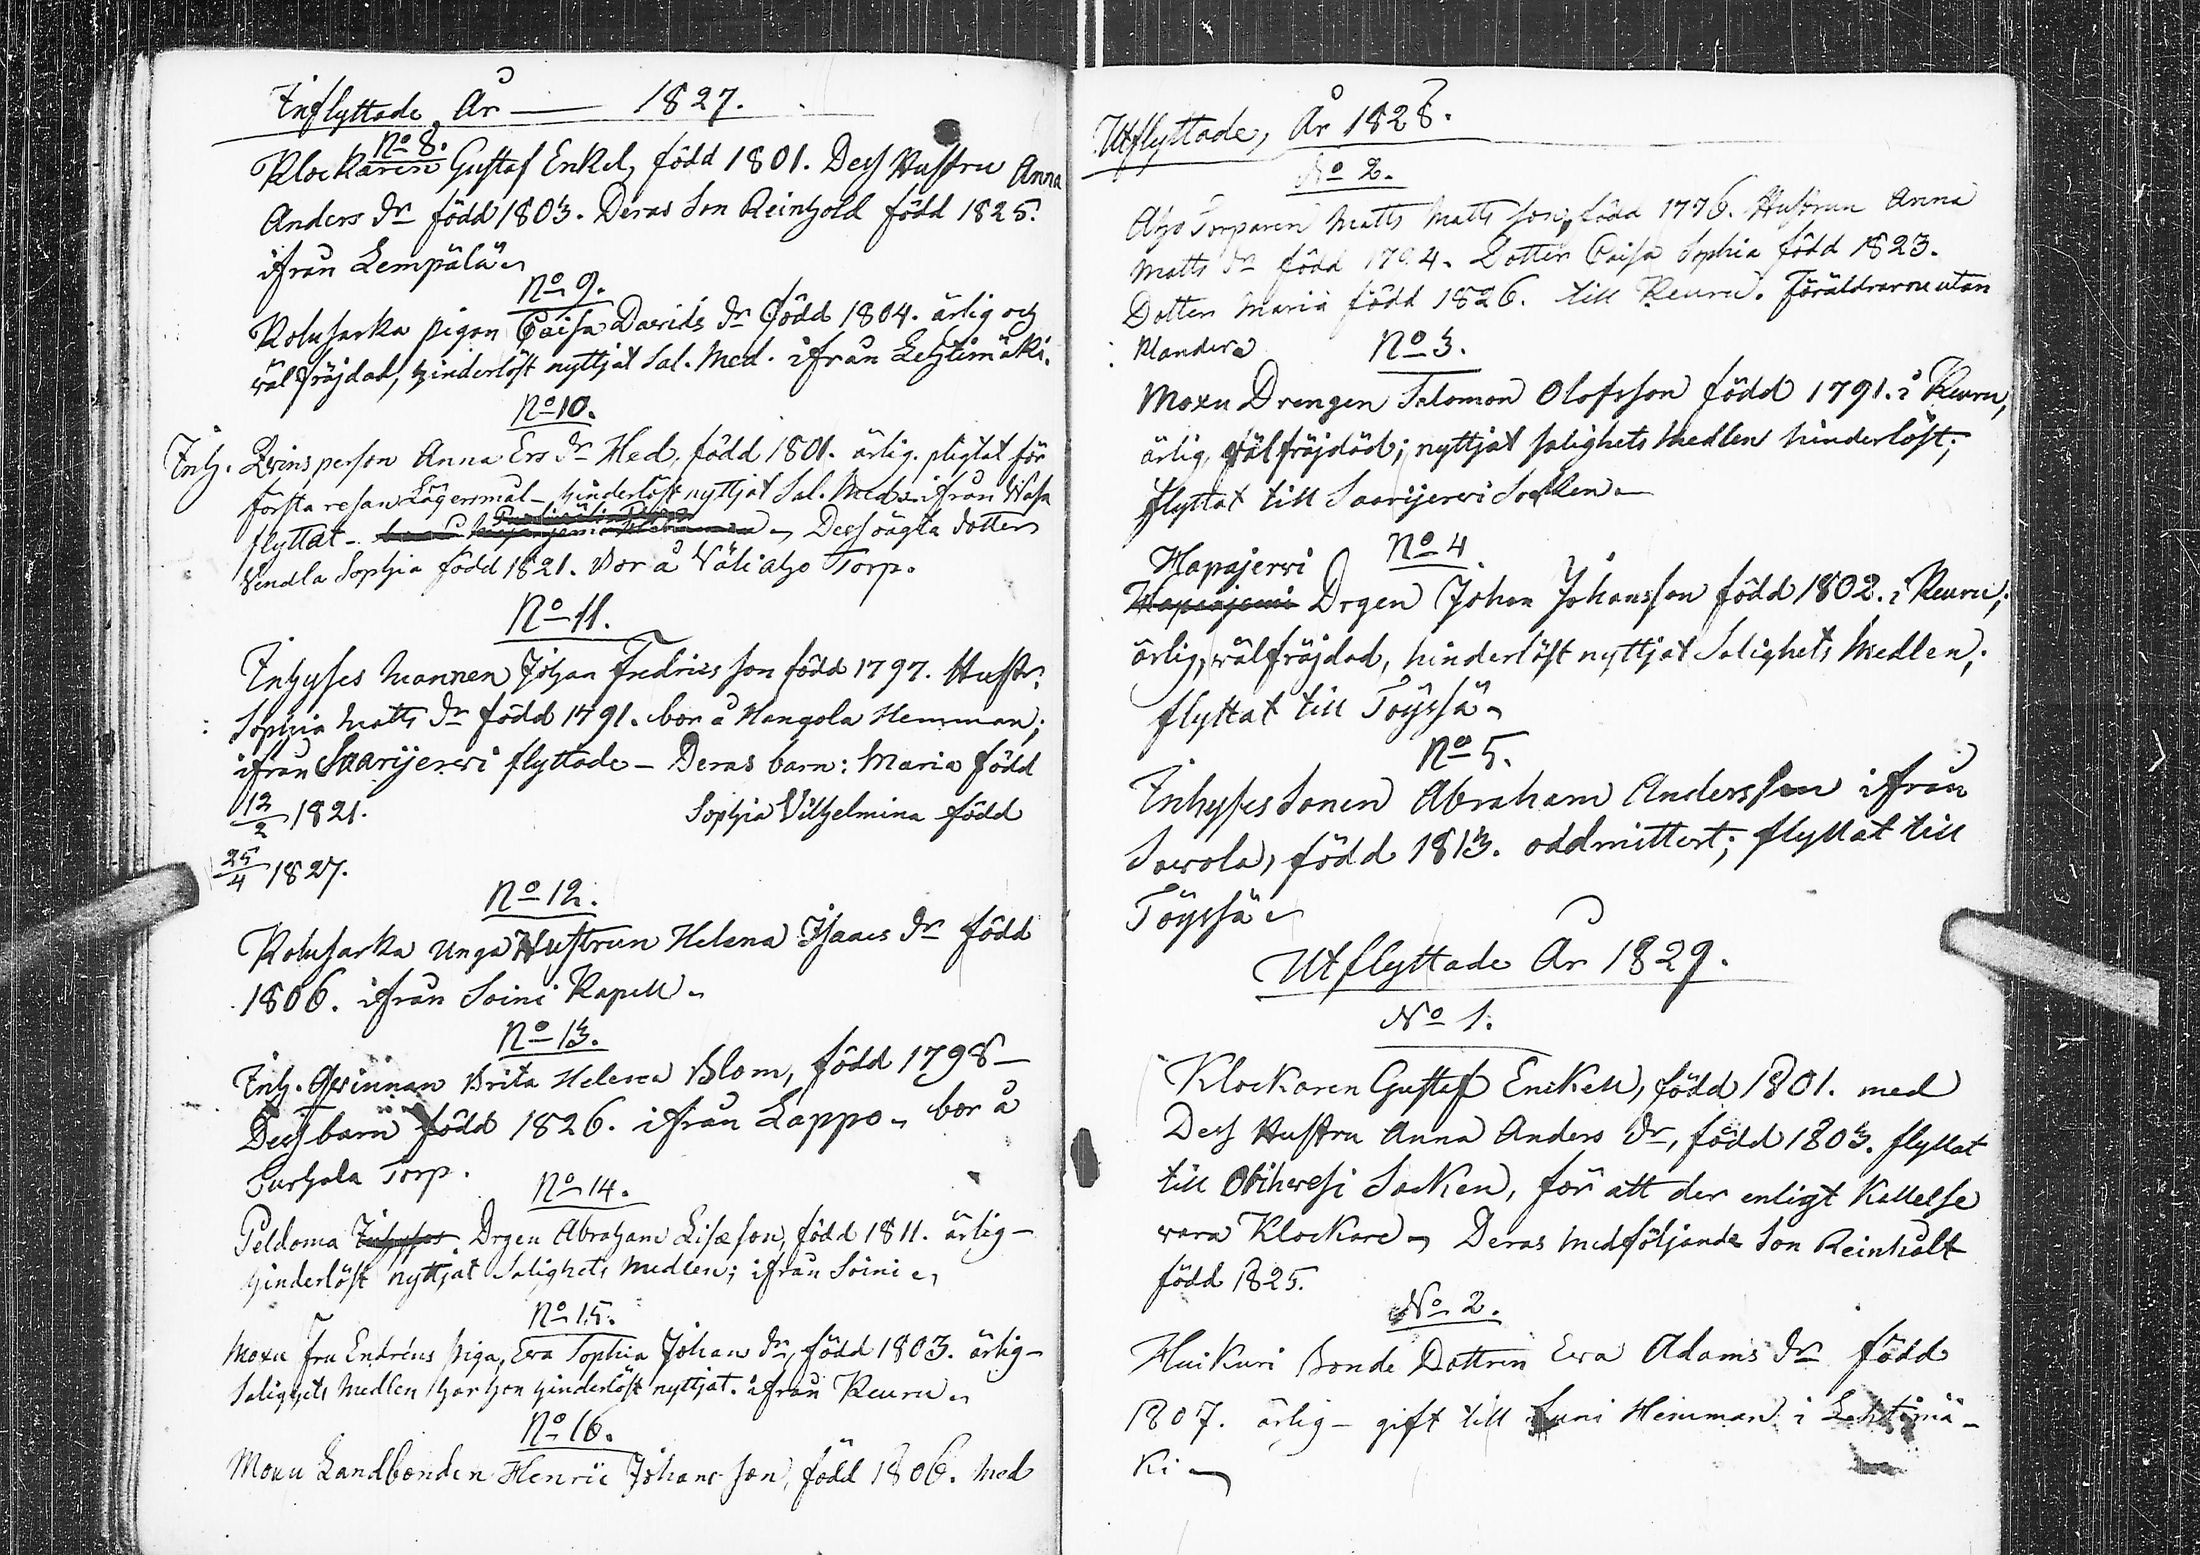 Inflyttade År — 1827.
No 8.
Klockaren Gustaf Enkel, född 1801. Dess Hustru Anna
Anders dr född 1803. Deras Son Reinhold född 1825.
ifrån Lempälä
No 9.
Kolusarka pigan Caisa Davids dr född 1804. ärlig och
välfräjdad, hinderlöst nyttjat Sal. Med. ifrån Lehtimäki.
No 10.
Inh. Qvinsperson Anna Ers dr Hed, född 1801. ärlig. pligtat för
första resan Lägersmål – hinderlöst nyttjat Sal. Med. ifrån Wasa
flyttat – Dess oägta dotter
Vendla Sophia född 1821. Bor å Väliaho Torp.
No 11.
Inhyses mannen Johan Fredrics son född 1797. Hustr.
Sophia Matts dr född 1791. bor å Hangola Hemman;
ifrån Saarijerwi flyttade – Deras barn: Maria född
12/2 1821. Sophia Vilhelmina född
25/4 1827.
No 12.
Kolusarka Unga Hustrun Helena Isaacs dr född
1806. ifrån Soini Kapell
No 13.
Inh. Qvinnan Brita Helena Blom, född 1798 –
Dess barn född 1826. ifrån Lappo – bor å
Turhala Torp.
No 14.
Peldoma Inhyses Drgen Abraham Lisæson, född 1811. ärlig –
hinderlöst nyttjat Salighets Medlen; ifrån Soini
No 15.
Moxu Fru Endréns piga, Eva Sophia Johans dr, född 1803. ärlig –
Salighets Medlen har hon hinderlöst nyttjat. ifrån Keuru
No 16.
Moxu Landbonden Henric Johans son, född 1806. med
Utflyttade, År 1828.
No 2.
Aho Torparen Matts Matts son, född 1776. Hustrun Anna
Matts dr född 1794. Dotter Caisa Sophia född 1823.
Dotter Maria född 1826. till Keuru. Föräldrarne utan
klander
No 3.
Moxu Drengen Salomon Olofsson född 1791. i Keuru,
ärlig, välfräjdad; nyttjat salighets Medlen hinderlöst;
flyttat till Saarijerwi Socken
No 4.
Hapajerwi
Hapajerwi Drgen Johan Johansson född 1802. i Keuru;
ärlig, välfräjdad, hinderlöst nyttjat Salighets Medlen;
flyttat till Töyssä
No 5.
Inhyses Sonen Abraham Andersson ifrån
Sawola, född 1813. oadmittert; flyttat till
Töyssä
Utflyttade År 1829.
No 1.
Klockaren Gustef Enckell, född 1801. med
Dess Hustru Anna Anders dr, född 1803. flyttat
till Orihwesi Socken, för att der enligt Kallelse
wara Klockare – Deras medföljande Son Reinholt
född 1825.
No 2.
Huikuri Bonde Dottren Eva Adams dr född
1807. ärlig – gift till Suni Hemman i Lehtimä-
ki